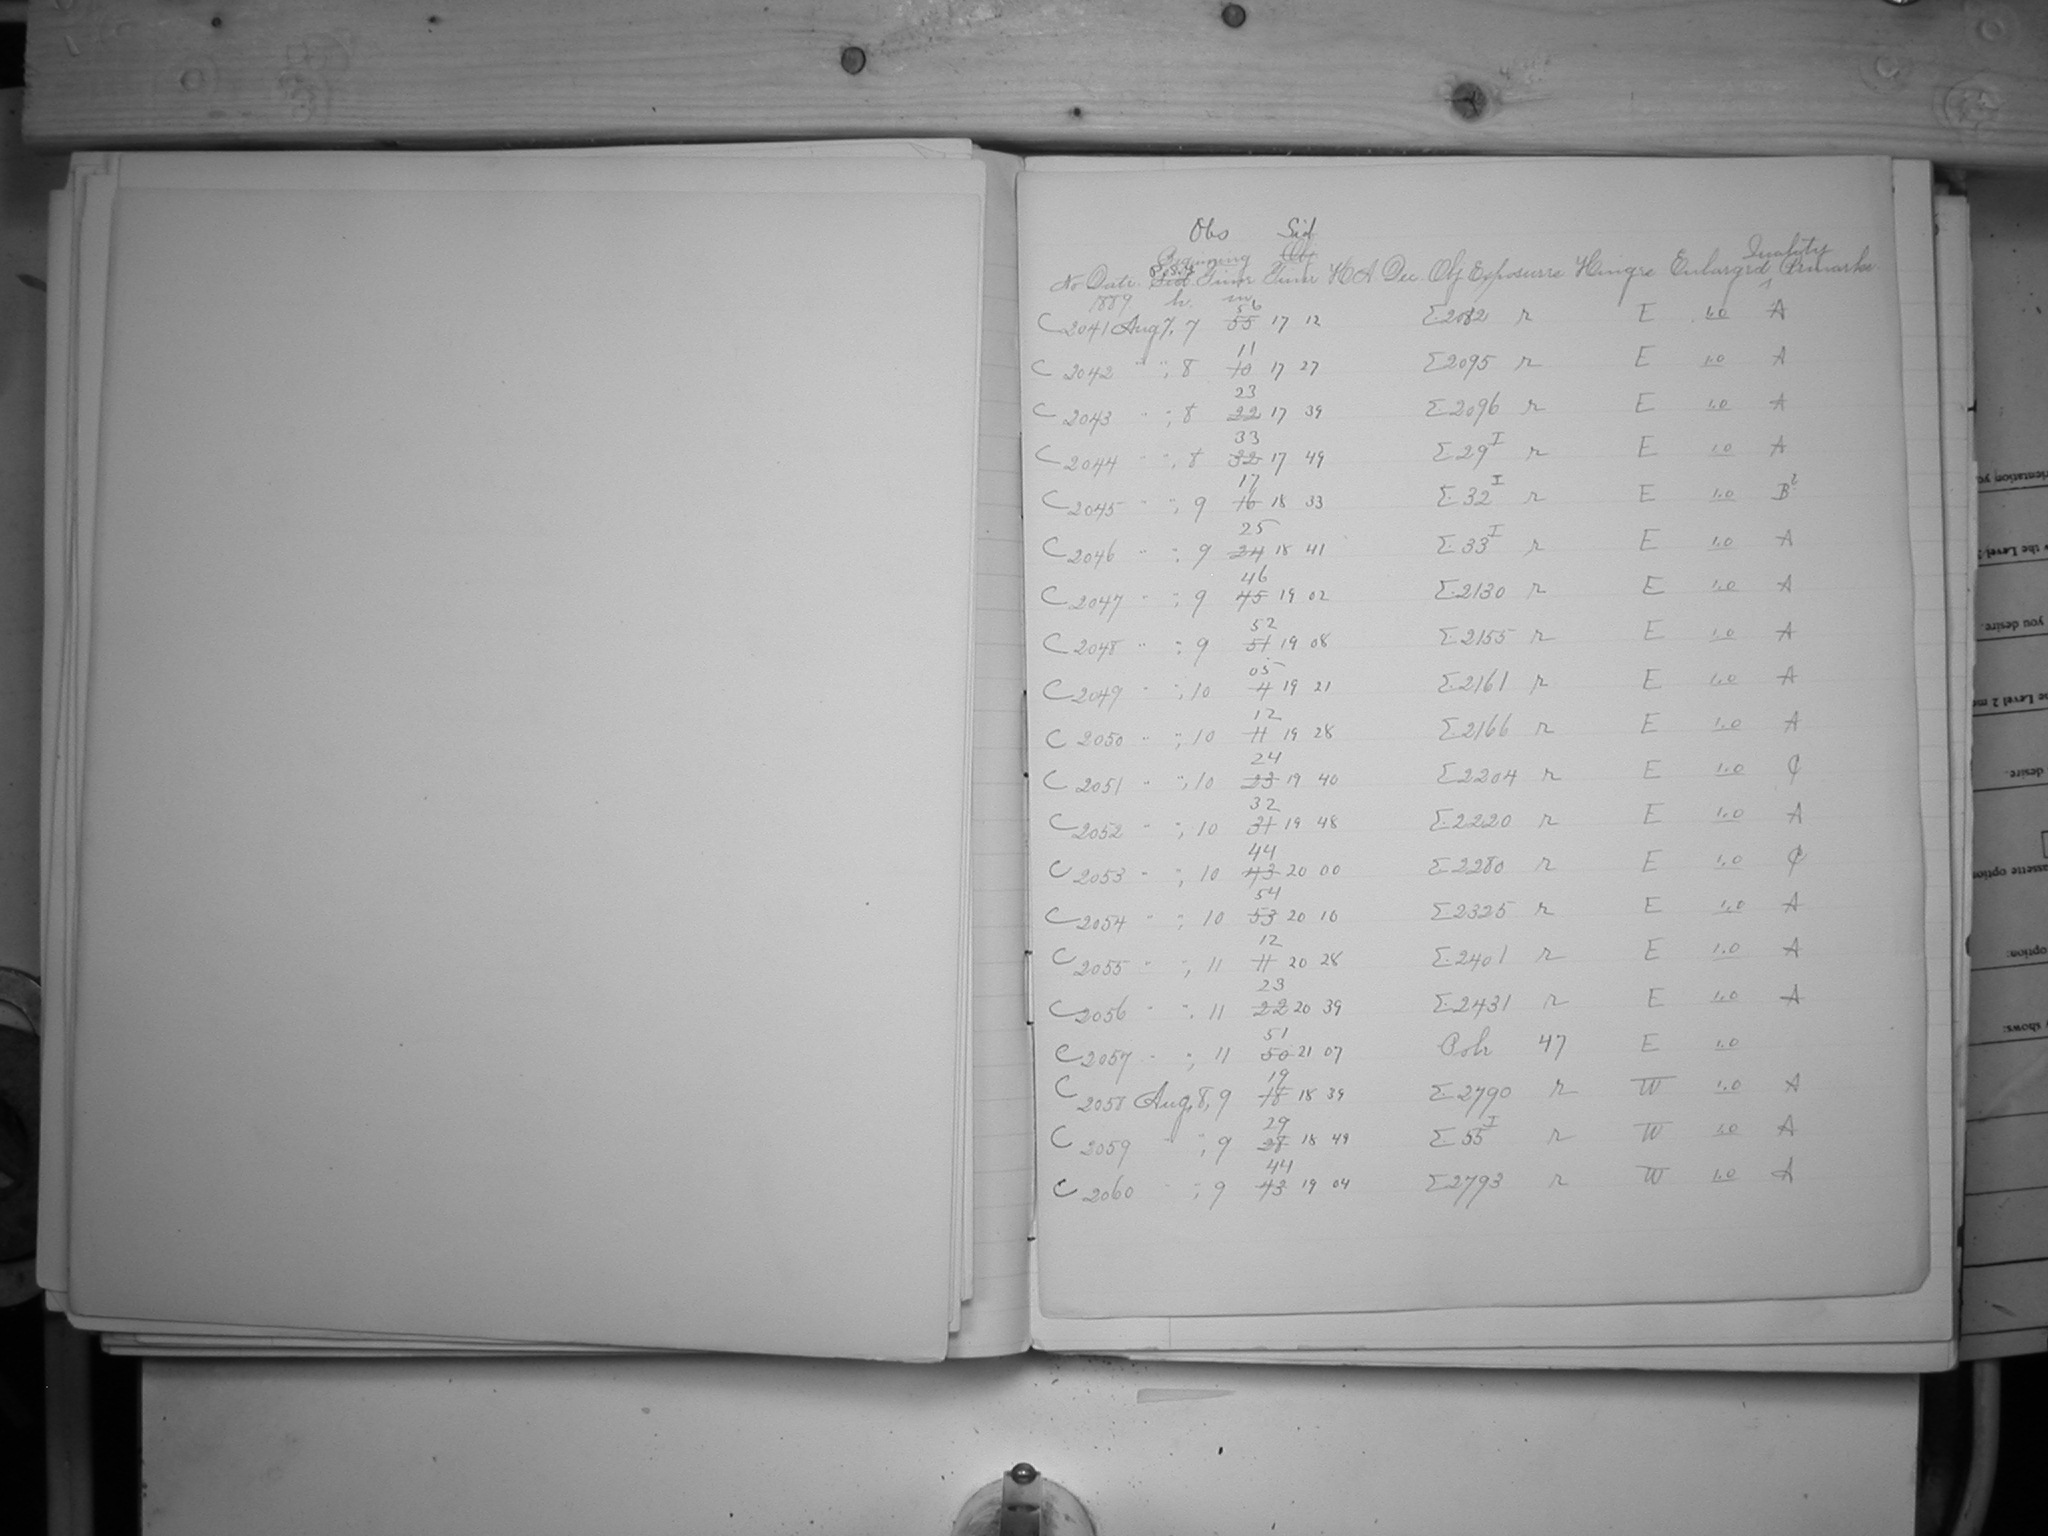 Obs Sid
Beginning Obs
No Date. Sid. Time Time HA Dec. Obj Exposure Hinge Enlarged Quality Remarks
1889 h. m
C2041 Aug 7, 7 56 55 17 12 Σ2082 r E 1.0 A
C2042 " "; 8 11 10 17 27 Σ2095 r E 1.0 A
C2043 " "; 8 23 22 17 39 Σ2096 r E 1.0 A
C2044 " "; 8 33 32 17 49 Σ29 I r E 1.0 A
C2045 " "; 9 17 16 18 33 Σ32 I r E 1.0 B?
C2046 " "; 9 25 24 18 41 Σ33 I r E 1.0 A
C2047 " "; 9 46 45 19 02 Σ2130 r E 1.0 A
C2048 " "; 9 52 51 19 08 Σ2155 r E 1.0 A
C2049 " "; 10 05 4 19 21 Σ2161 r E 1.0 A
C2050 " "; 10 12 11 19 28 Σ2166 r E 1.0 A
C2051 " "; 10 24 23 19 40 Σ2204 r E 1.0 C
C2052 " "; 10 32 31 19 48 Σ2220 r E 1.0 A
C2053 " "; 10 44 43 20 00 Σ2280 r E 1.0 C
C2054 " "; 10 54 53 20 10 Σ2325 r E 1.0 A
C2055 " "; 11 12 11 20 28 Σ2401 r E 1.0 A
C2056 " "; 11 23 22 20 39 Σ2431 r E 1.0 A
C2057 " "; 11 51 50 21 07 Pole 47 E 1.0
C2058 Aug. 8, 9 19 18 18 39 Σ2790 r W 1.0 A
C2059 " "; 9 29 28 18 49 Σ55 I r W 1.0 A
C2060 " "; 9 44 43 19 04 Σ2793 r W 1.0 A
you desire.
desire.
option:
shows: